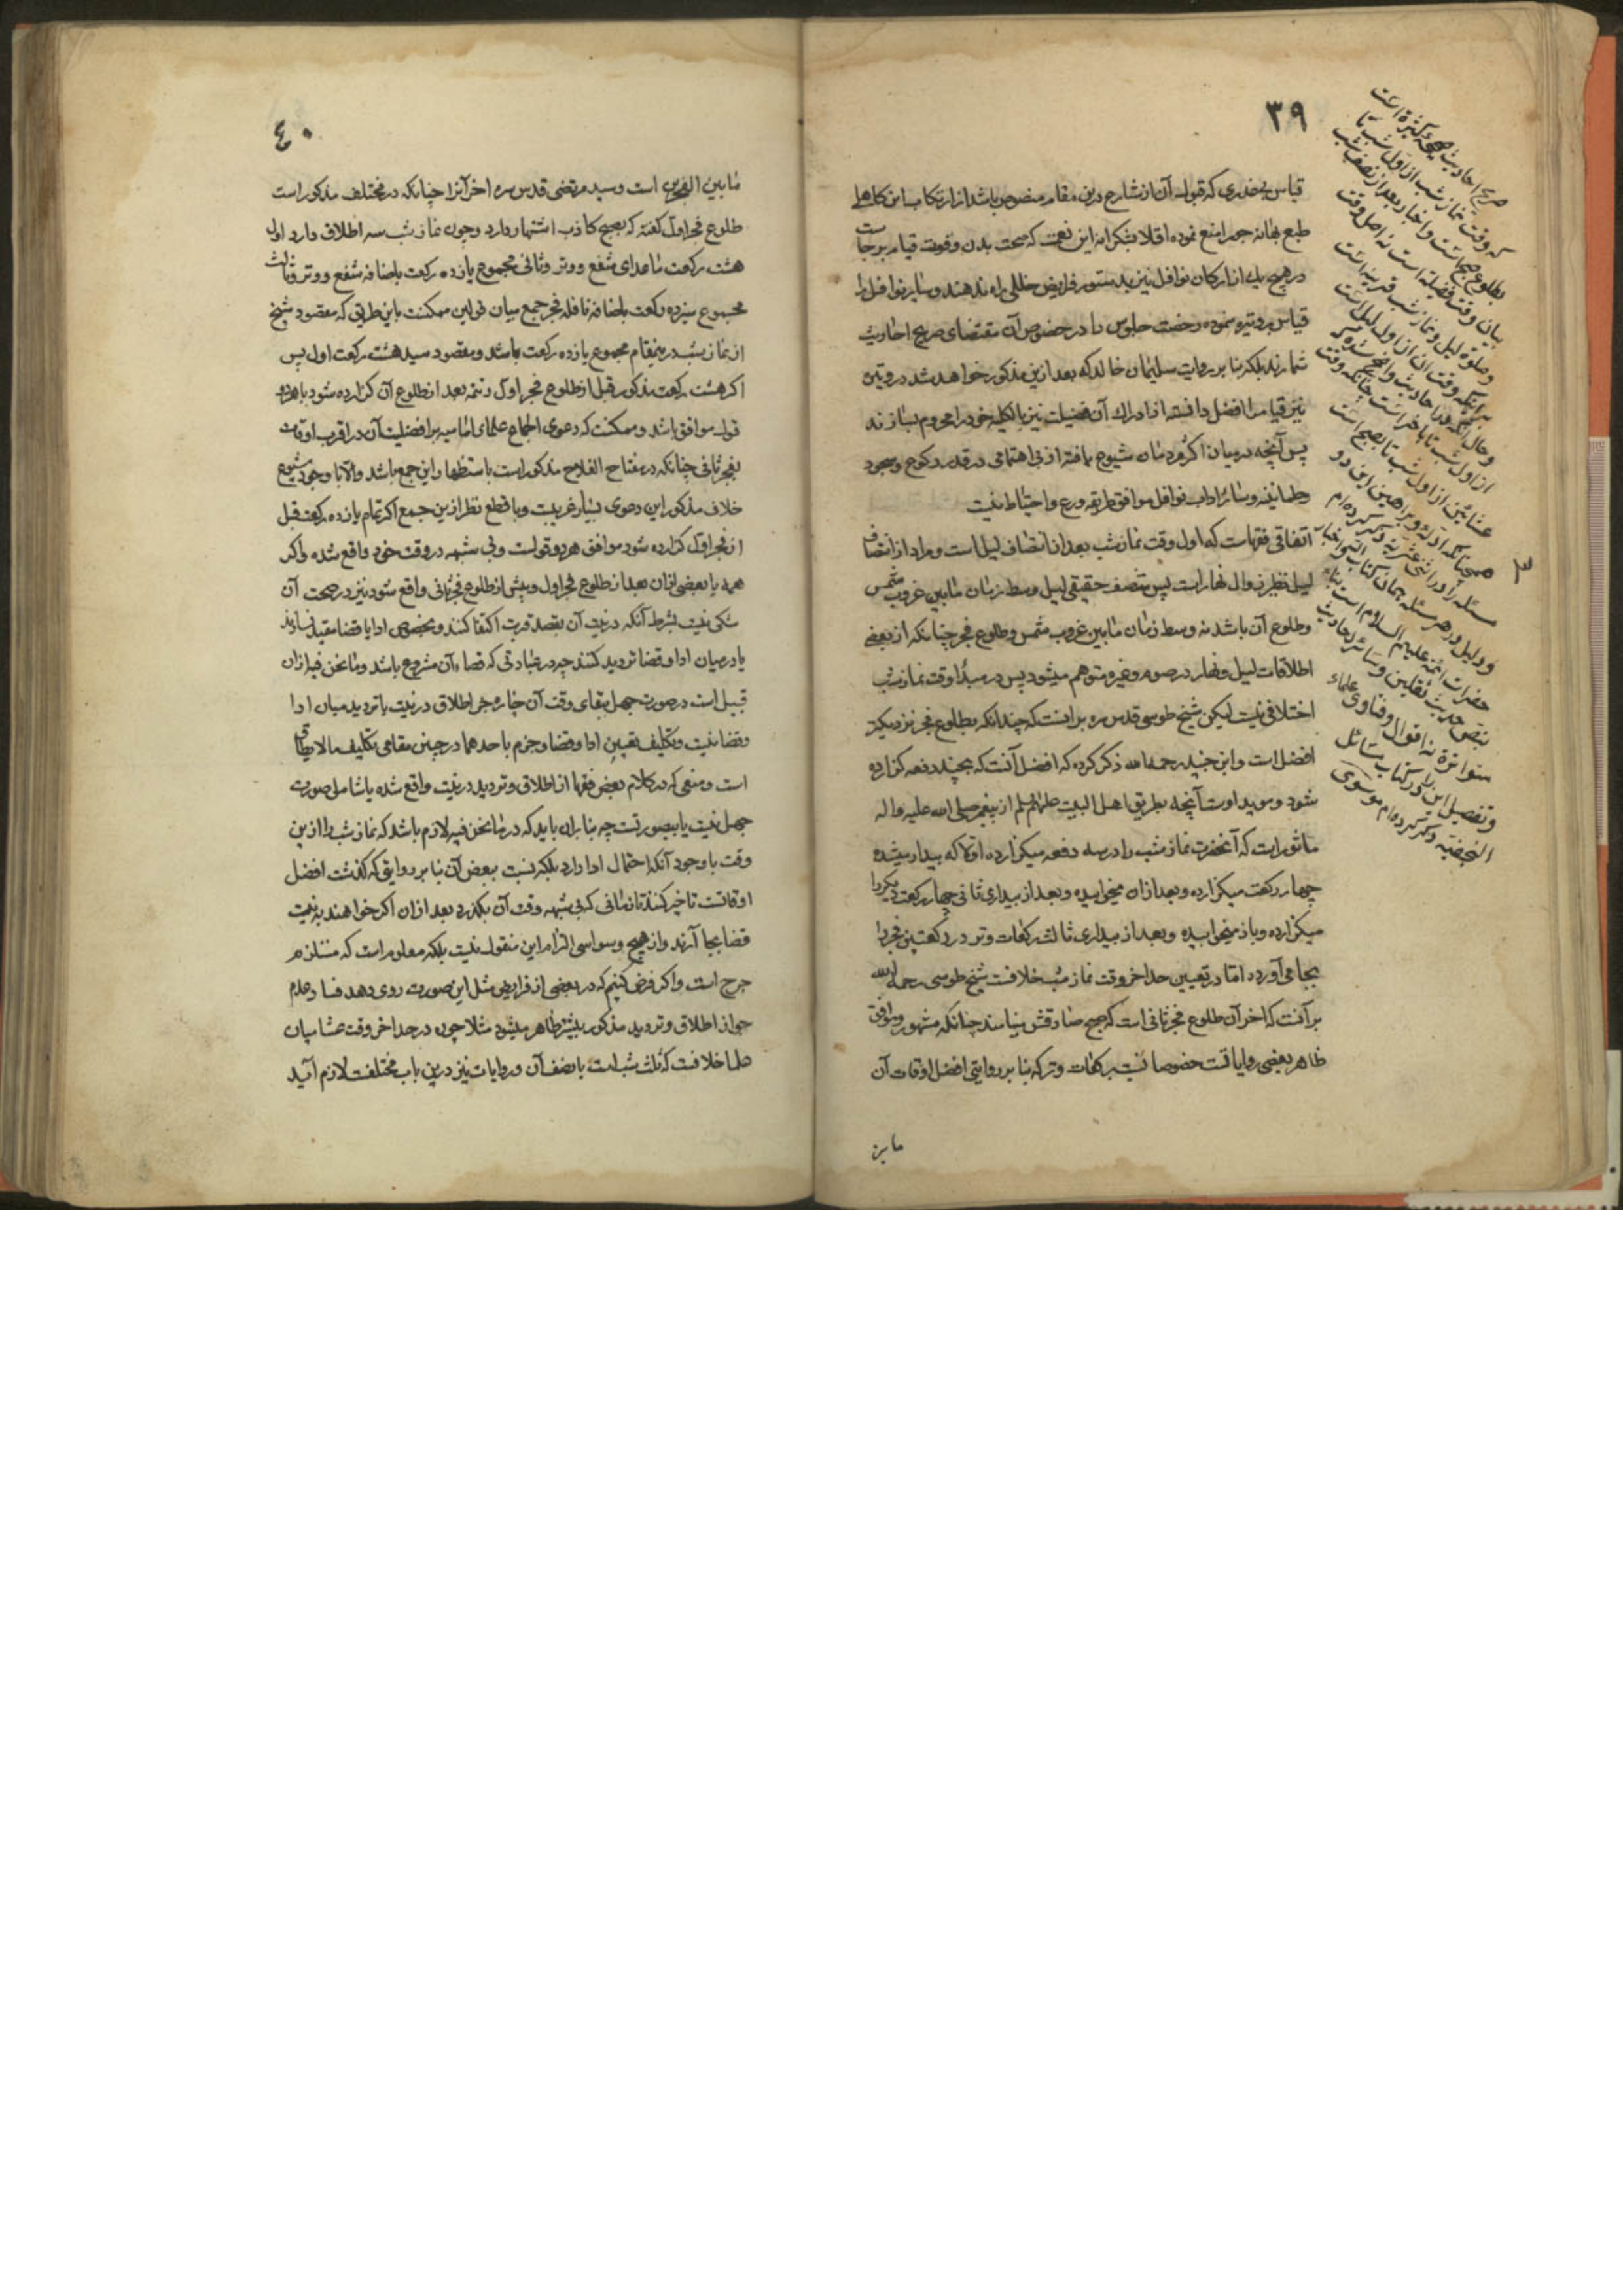 ٣٩
قیاس بعذری که قبول آن از شارع درین مقام منصوص باشد از ارتکاب این کاهلی
طبع بهانه جو را منع نموده اقلا بشکرانه این نعمت که صحت بدن و قوت قیام برجاست
در هیچ یک از ارکان نوافل نیز بدستور فرایض خللی راه ندهند و سایر نوافل را
قیاس بر وتیره نموده رخصت جلوس را در خصوص آن مقتضای صریح احادیث
شمارند بلکه بنا بر روایت سلیمان خالد که بعد ازین مذکور خواهد شد در وتیره
نیز قیام را افضل دانسته از ادراک آن فضیلت نیز بالکلیه خود را محروم نسازند
پس آنچه در میان اکثر مردمان شیوع یافته از بی اهتمامی در قدر رکوع و سجود
و طمانینه و سائر اداب نوافل موافق طریقه ورع و احتیاط نیست
اتفاقی فقهاست که اول وقت نماز شب بعد از انتصاف لیل است و مراد از انتصاف
لیل نظیر زوال نهار است پس منتصف حقیقی لیل وسط زمان مابین غروب شمس
و طلوع آن باشد نه وسط زمان مابین غروب شمس و طلوع فجر چنانکه از بعضی
اطلاقات لیل و نهار در صوم و غیره متوهم میشود پس در مبدأ وقت نماز شب
اختلافی نیست لیکن شیخ طوسی قدس سره برانست که چندانکه بطلوع فجر نزدیکتر
افضل است و ابن جنید رحمه الله ذکر کرده که افضل آنست که بچند دفعه کزارده
شود و موید اوست آنچه بطریق اهل البیت علیهم السلم از پیغمبر صلی الله علیه و اله
ماثور است که آنحضرت نماز شب را در سه دفعه میکزارده اولا که بیدار میشده
چهار رکعت میکزارده و بعد از ان میخوابیده و بعد از بیداری ثانی چهار رکعت دیکر را
میکزارده و باز میخوابیده و بعد از بیداری ثالث رکعات وتر و دو رکعتین فجر را
بجا می آورده اما در تعیین حد اخر وقت نماز شب خلافست شیخ طوسی رحمه الله
بر آنست که اخر آن طلوع فجر ثانی است که صبح صادقش مینامند چنانکه مشهور و موافق
ظاهر بعضی روایاتست خصوصا نسبت برکعات وتر که بنا بر روایتی افضل اوقات آن
مابین
صریح احادیث صحیحه کثیره است
که وقت نماز شب از اول شب تا
بطلوع صبح است و اخبار بعد از نصف شب
بیان وقت فضیلة است نه اصل وقت
وصلوة لیل و نماز شب قرینه است
بر آنکه وقت ان از اول لیل است
وحال آنکه در احادیث واضح شده که
از اول شب تا باخر است چنانکه وقت
عشائین از اول شب تا بصبح است
چنانکه ادله و براهین این دو
مسئله را در اثنی عشریه ذکر کرده ام
و دلیل در هر مسئله همان کتاب الله و اخبار
حضرات ائمه علیهم السلام است بنا بر
بنص حدیث ثقلین و سائر احادیث
متواتره نه اقوال و فتاوی علماء
وتفصیل این را در کتاب مسائل
النجفیة ذکر کرده ام موسوی
٤٠
مابین الفجرین است و سید مرتضی قدس سره اخر آنرا چنانکه در مختلف مذکور است
طلوع فجر اول کفته که بصبح کاذب اشتهار دارد و چون نماز شب سه اطلاق دارد اول
هشت رکعت ماعدای شفع و وتر و ثانی مجموع یازده رکعت باضافه شفع و وتر و ثالث
مجموع سیزده رکعت باضافه نافله فجر جمع میان قولین ممکنست باین طریق که مقصود شیخ
از نماز شب درینمقام مجموع یازده رکعت باشد و مقصود سید هشت رکعت اول پس
اکر هشت رکعت مذکور قبل از طلوع فجر اول و تتمه بعد از طلوع آن کزارده شود با هر دو
قول موافق باشد و ممکنست که دعوی اجماع علمای امامیه بر افضلیت آن در اقرب اوقات
بفجر ثانی چنانکه در مفتاح الفلاح مذکور است باستظهار این جمع باشد و الا با وجود شیوع
خلاف مذکور این دعوی بسیار غریبست و با قطع نظر ازین جمع اکر تمام یازده رکعت قبل
از فجر اول کزارده شود موافق هر دو قولست و بی شبهه در وقت خود واقع شده و اکر
همه یا بعضی از ان بعد از طلوع فجر اول و پیش از طلوع فجر ثانی واقع شود نیز در صحت آن
شکی نیست بشرط آنکه در نیت آن بقصد قربت اکتفا کنند و بخصوص ادا یا قضا مقید نسازند
یا در میان ادا و قضا تردید کنند چه در عبادتی که قضاء آن مشروع باشد و مانحن فیه ازان
قبیل است در صورت جهل ببقای وقت آن چاره جز اطلاق در نیت یا تردید میان ادا
و قضا نیست و تکلیف بتعیین ادا و قضا و جزم باحدهما در چنین مقامی تکلیف مالا یطاق
است و منعی که در کلام بعض فقها از اطلاق و تردید در نیت واقع شده یا شامل صورت
جهل نیست یا بیصورتست چه بنا بران باید که در مانحن فیه لازم باشد که نماز شب را ازین
وقت با وجود آنکه احتمال ادا دارد بلکه نسبت ببعض آن بنا بر روایتی که کذشت افضل
اوقاتست تاخیر کنند تا زمانی که بی شبهه وقت آن بکذرد بعد از ان اکر خواهند به نیت
قضا بجا آرند و از هیچ وسواسی التزام این منقول نیست بلکه معلوم است که مستلزم
حرج است و اکر فرض کنیم که در بعضی از فرایض مثل این صورت روی دهد فساد عدم
جواز اطلاق و تردید مذکور بیشتر ظاهر میشود مثلا چون در حد اخر وقت عشا میان
علما خلافست که ثلث شب است یا نصف آن و روایات نیز درین باب مختلفست لازم آید